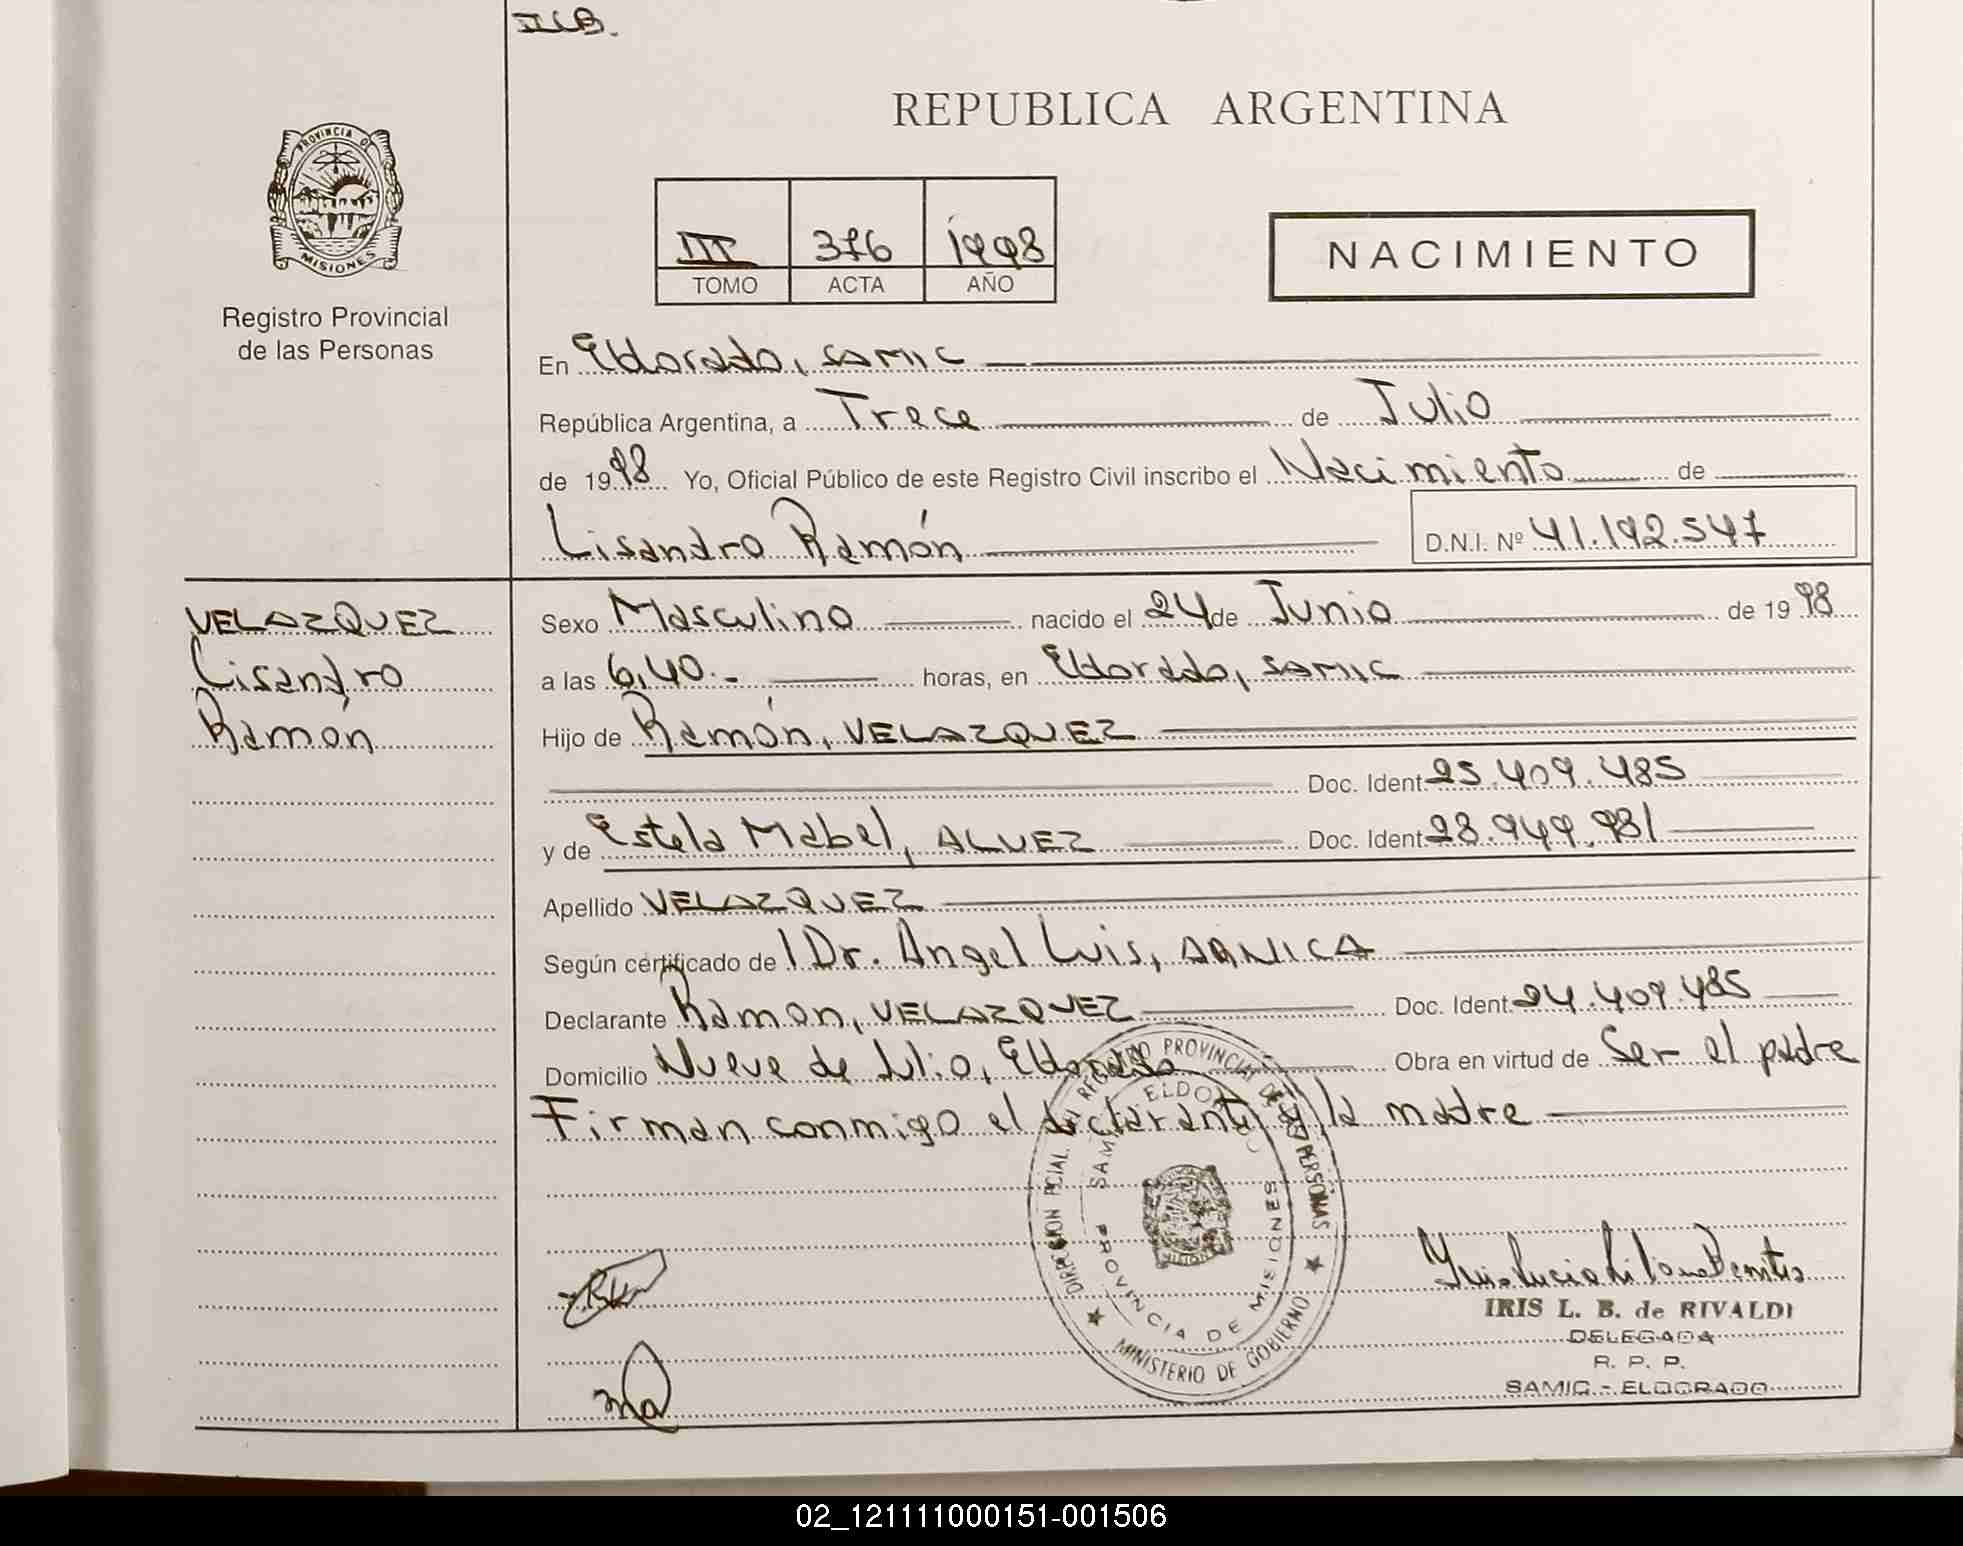 IIB.
REPUBLICA ARGENTINA
PROVINCIA DE
MISIONES
Registro Provincial
de las Personas
III 376 1998
TOMO ACTA AÑO
NACIMIENTO
En Eldorado, SAMIC
República Argentina, a Trece de Julio
de 1998 Yo, Oficial Público de este Registro Civil inscribo el Nacimiento de
Lisandro Ramón D.N.I. Nº 41.192.547
VELAZQUEZ
Lisandro
Ramón
Sexo Masculino nacido el 24 de Junio de 1998
a las 6,40.- horas, en Eldorado, SAMIC
Hijo de Ramón, VELAZQUEZ
Doc. Ident. 25.409.485
y de Estela Mabel, ALVEZ Doc. Ident. 28.949.981
Apellido VELAZQUEZ
Según certificado de l Dr. Angel Luis, ARNICA
Declarante Ramon, VELAZQUEZ Doc. Ident. 24.409.485
Domicilio Nueve de Julio, Eldorado Obra en virtud de Ser el padre
Firman conmigo el declarante y la madre
DIRECCION PCIAL. DEL REGISTRO PROVINCIAL DE LAS PERSONAS
SAMIC ELDORADO
PROVINCIA DE MISIONES
MINISTERIO DE GOBIERNO
IRIS L. B. de RIVALDI
DELEGADA
R. P. P.
SAMIC - ELDORADO
02_121111000151-001506